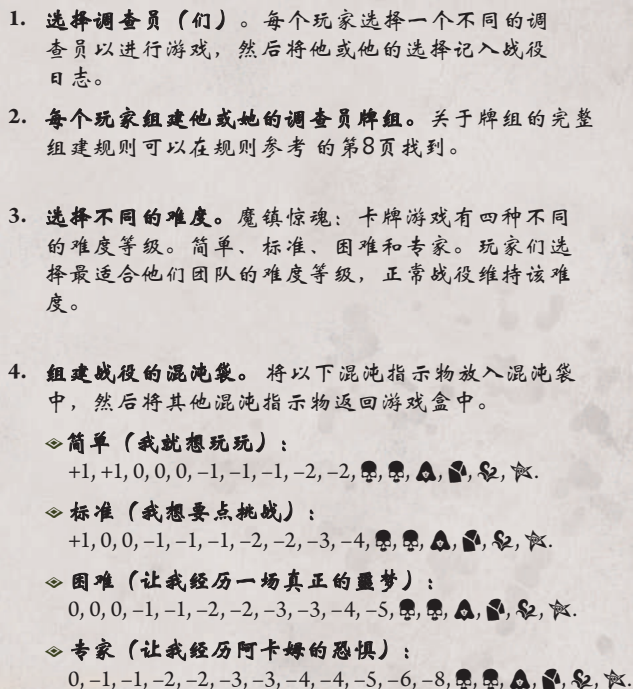 1. 选择调查员（们）。每个玩家选择一个不同的调
查员以进行游戏，然后将他或他的选择记入战役
日志。
2. 每个玩家组建他或她的调查员牌组。关于牌组的完整
组建规则可以在规则参考 的第8页找到。
3. 选择不同的难度。魔镇惊魂：卡牌游戏有四种不同
的难度等级。简单、标准、困难和专家。玩家们选
择最适合他们团队的难度等级，正常战役维持该难
度。
4. 组建战役的混沌袋。 将以下混沌指示物放入混沌袋
中，然后将其他混沌指示物返回游戏盒中。
简单（我就想玩玩）：
+1, +1, 0, 0, 0, –1, –1, –1, –2, –2, , , , , , .
标准（我想要点挑战）：
+1, 0, 0, –1, –1, –1, –2, –2, –3, –4, , , , , , .
困难（让我经历一场真正的噩梦）：
0, 0, 0, –1, –1, –2, –2, –3, –3, –4, –5, , , , , , .
专家（让我经历阿卡姆的恐惧）：
0, –1, –1, –2, –2, –3, –3, –4, –4, –5, –6, –8, , , , , , .